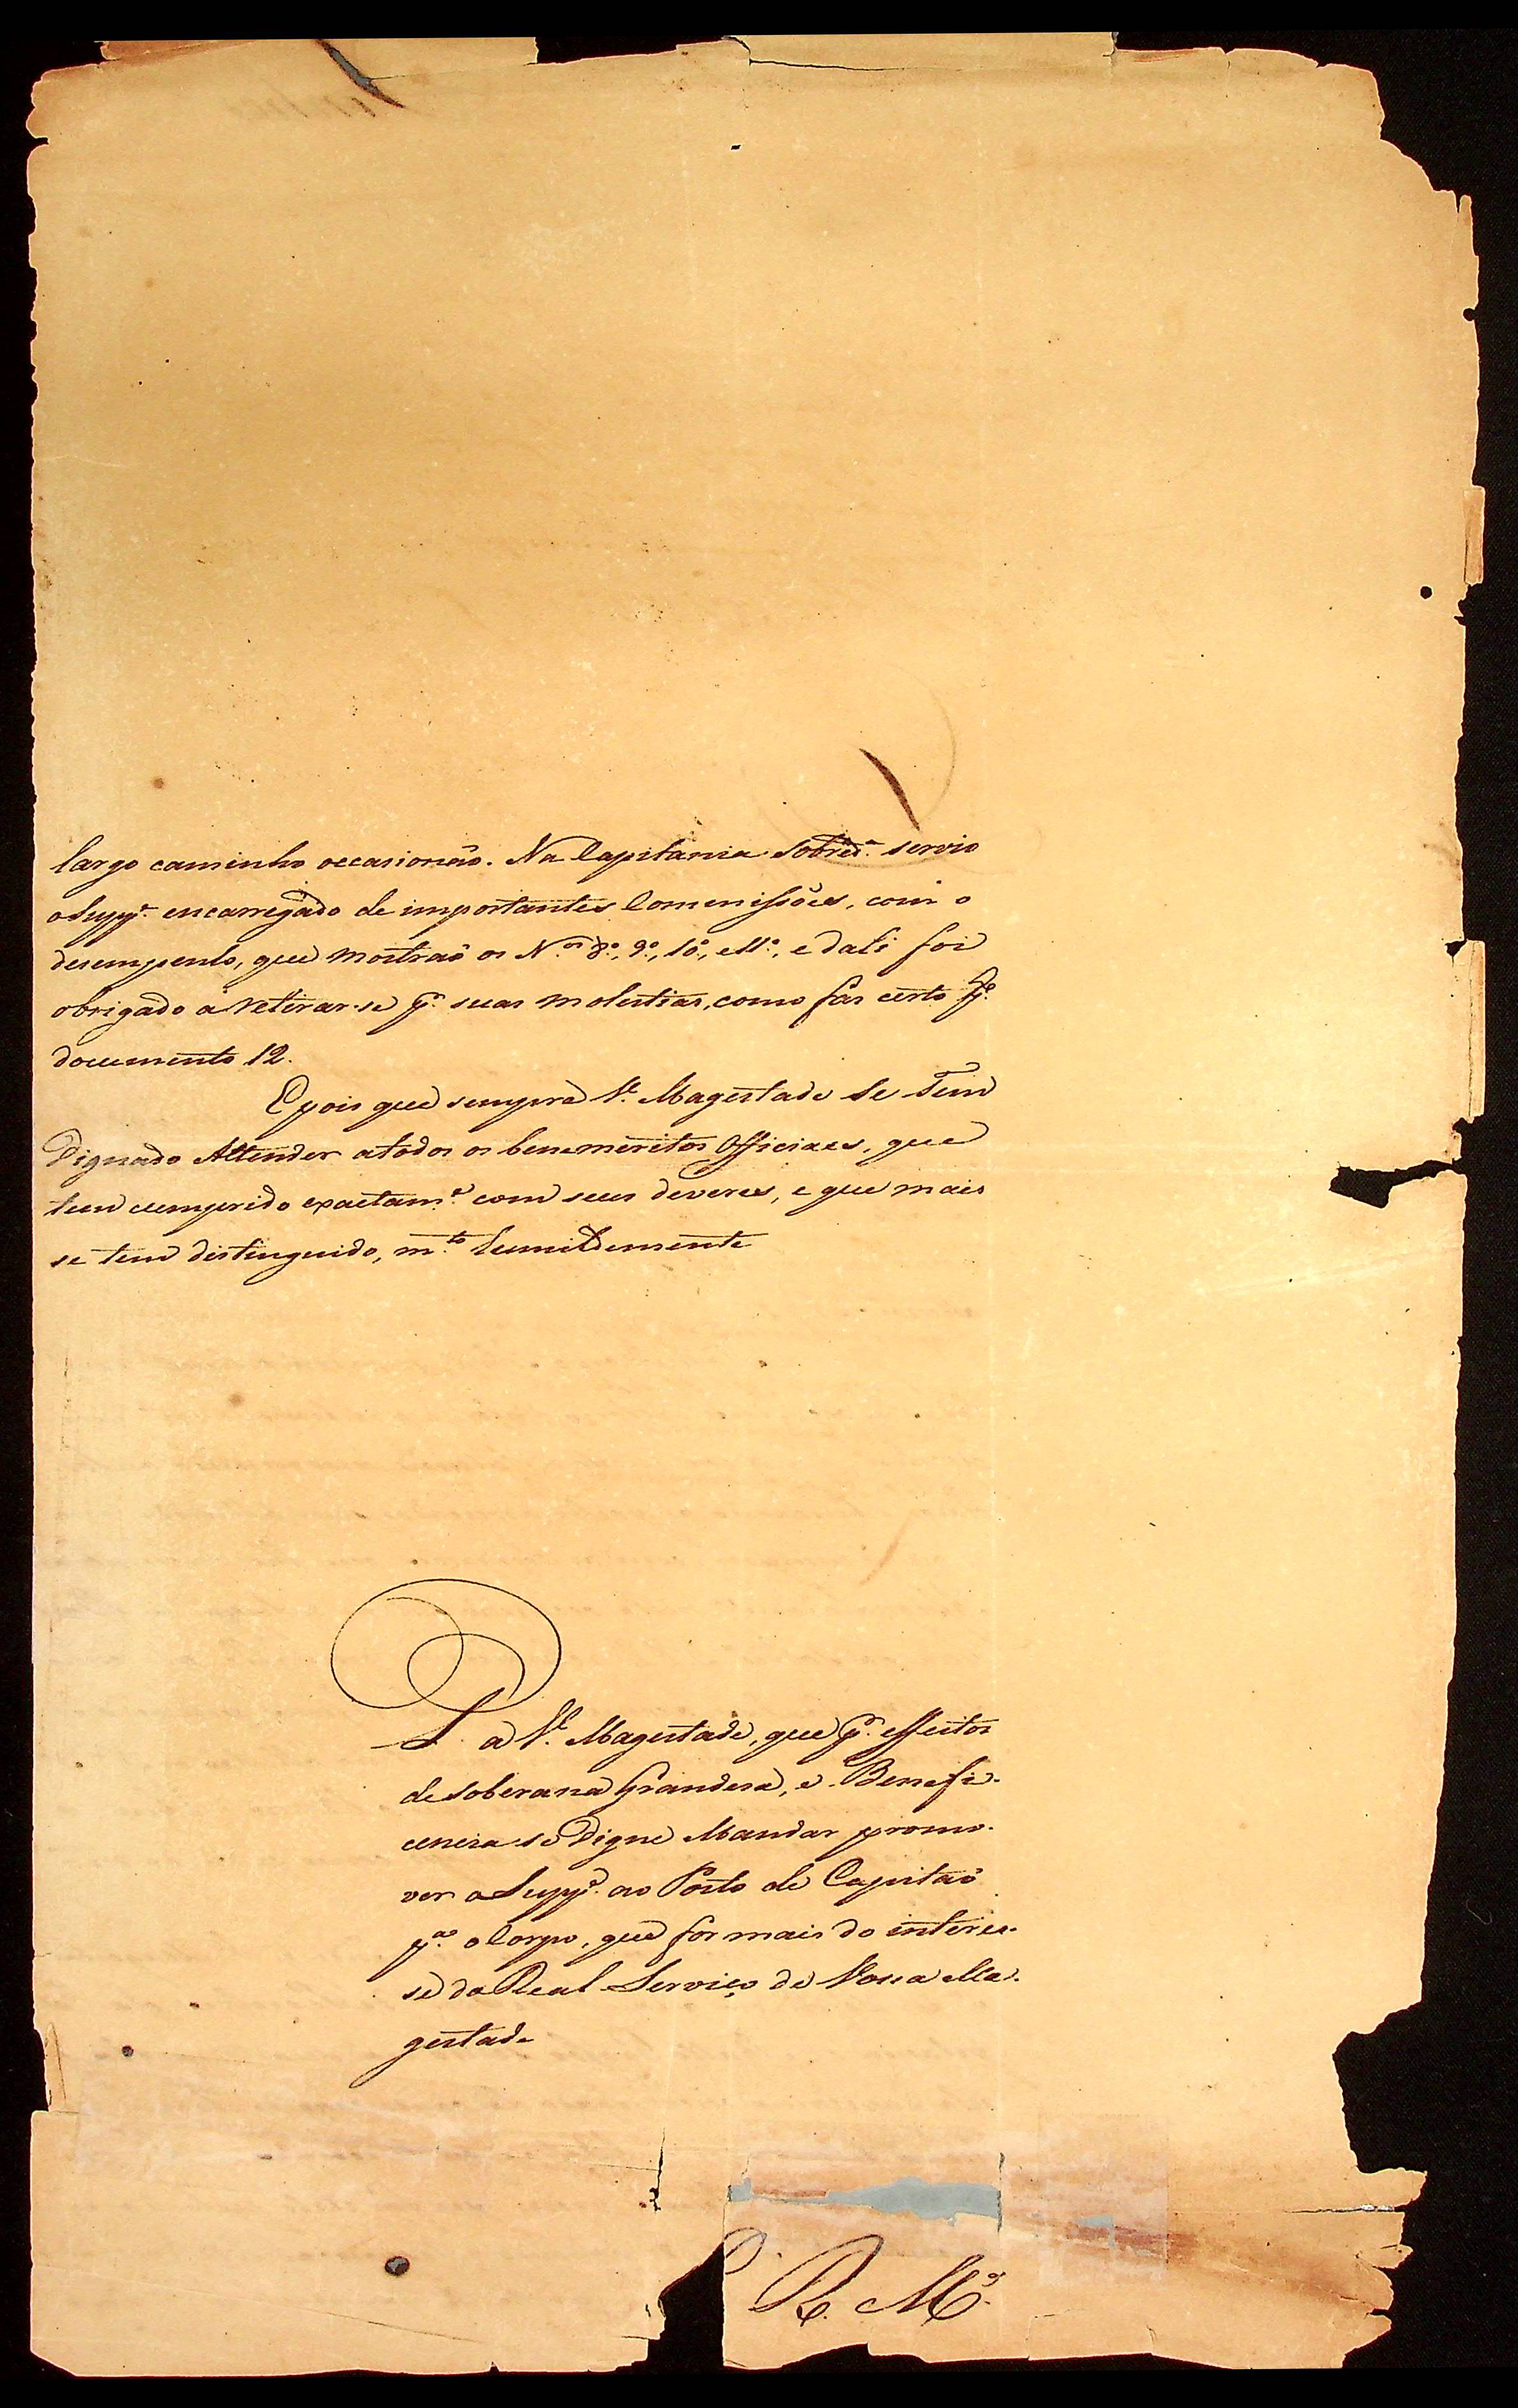 largo caminho occasionão. Na Capitania sobred.ª servio
o Supp.e encarregado de importantes Commissões, com o
desempenho, que mostraõ os N.os 8.º, 9.º, 10.º, e 11.º, e dali foi
obrigado a retirar-se p.r suas molestias, como fas certo p.lo
documento 12.
E pois que sempre V. Magestade Se Tem
Dignado Attender a todos os benemeritos Officiaes, que
tem cumprido exactam.e com seus deveres, e que mais
se tem distinguido, m.to humildemente
P. a V. Magestade, que p.r effeitos
de Soberana Grandesa, e Benefi-
cencia se Digne Mandar promo-
ver o Supp.e ao Posto de Capitaõ
p.a o Corpo, que for mais do interes-
se do Real Serviço de Vossa Ma-
gestade
R. M.ce